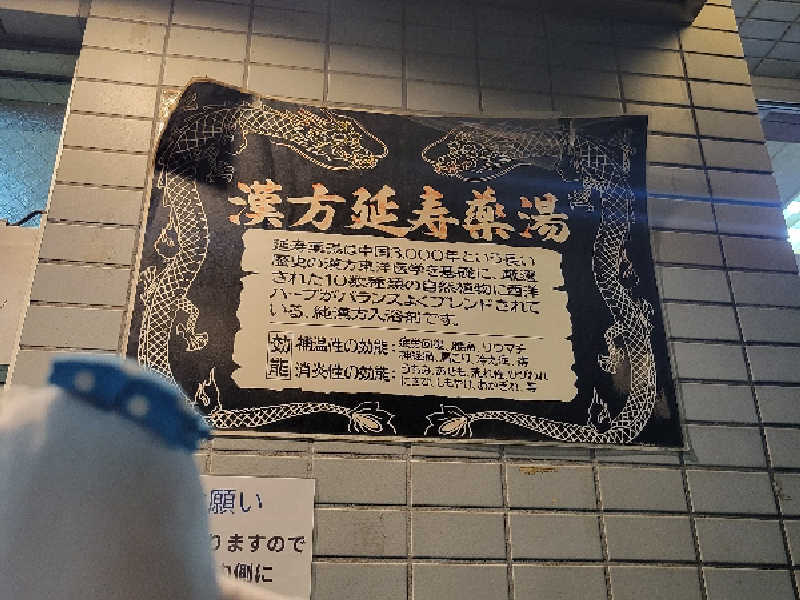 漢方延寿薬湯
延寿薬湯は中国3,000年という長い
歴史の漢方東洋医学を基礎に、厳選
された10数種類の自然植物に西洋
ハーブがバランスよくブレンドされて
いる、純漢方入浴剤です。
効能
補温性の効能:疲労回復、腰痛、リウマチ
神経痛、肩こり、冷え症、痔
消炎性の効能:うちみ、あせも、荒れ性、ひび
にきび、しもやけ、あかぎれ、
願い
りますので
側に